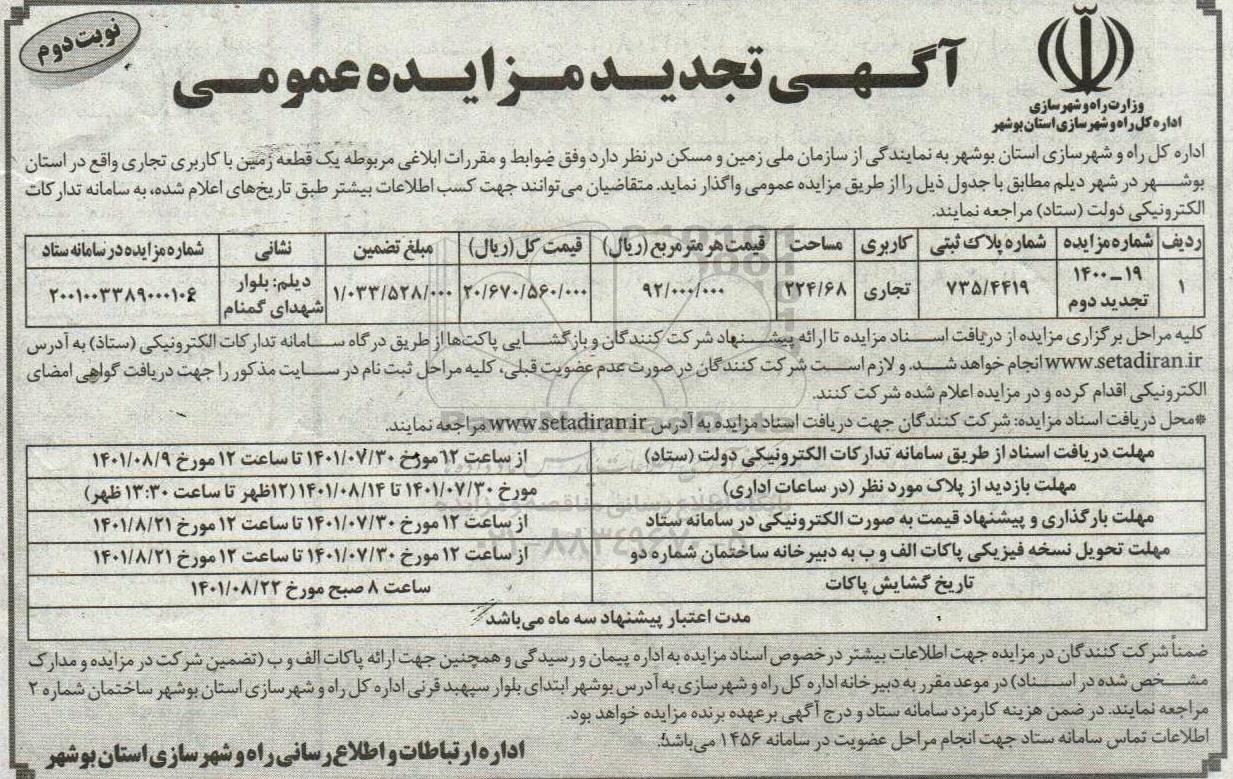 نوبت دوم
آگهی تجدید مزایده عمومی
وزارت راه و شهرسازی
اداره کل راه و شهرسازی استان بوشهر
اداره کل راه و شهرسازی استان بوشهر به نمایندگی از سازمان ملی زمین و مسکن درنظر دارد وفق ضوابط و مقررات ابلاغی مربوطه یک قطعه زمین با کاربری تجاری واقع در استان
بوشهر در شهر دیلم مطابق با جدول ذیل را از طریق مزایده عمومی واگذار نماید. متقاضیان می‌توانند جهت کسب اطلاعات بیشتر طبق تاریخ‌های اعلام شده، به سامانه تدارکات
الکترونیکی دولت (ستاد) مراجعه نمایند.
ردیف شماره مزایده شماره پلاک ثبتی کاربری مساحت قیمت هر متر مربع (ریال) قیمت کل (ریال) مبلغ تضمین نشانی شماره مزایده در سامانه ستاد
۱ ۱۹-۱۴۰۰ تجدید دوم ۷۳۵/۴۴۱۹ تجاری ۲۲۴/۶۸ ۹۲/۰۰۰/۰۰۰ ۲۰/۶۷۰/۵۶۰/۰۰۰ ۱/۰۳۳/۵۲۸/۰۰۰ دیلم: بلوار شهدای گمنام ۲۰۰۱۰۰۳۳۸۹۰۰۰۱۰۶
کلیه مراحل برگزاری مزایده از دریافت اسناد مزایده تا ارائه پیشنهاد شرکت کنندگان و بازگشایی پاکت‌ها از طریق درگاه سامانه تدارکات الکترونیکی (ستاد) به آدرس
www.setadiran.ir انجام خواهد شد. و لازم است شرکت کنندگان در صورت عدم عضویت قبلی، کلیه مراحل ثبت نام در سایت مذکور را جهت دریافت گواهی امضای
الکترونیکی اقدام کرده و در مزایده اعلام شده شرکت کنند.
*محل دریافت اسناد مزایده: شرکت کنندگان جهت دریافت اسناد مزایده به آدرس www.setadiran.ir مراجعه نمایند.
مهلت دریافت اسناد از طریق سامانه تدارکات الکترونیکی دولت (ستاد) از ساعت ۱۲ مورخ ۱۴۰۱/۰۷/۳۰ تا ساعت ۱۲ مورخ ۱۴۰۱/۰۸/۹
مهلت بازدید از پلاک مورد نظر (در ساعات اداری) مورخ ۱۴۰۱/۰۷/۳۰ تا ۱۴۰۱/۰۸/۱۴ (۱۲ظهر تا ساعت ۱۳:۳۰ ظهر)
مهلت بارگذاری و پیشنهاد قیمت به صورت الکترونیکی در سامانه ستاد از ساعت ۱۲ مورخ ۱۴۰۱/۰۷/۳۰ تا ساعت ۱۲ مورخ ۱۴۰۱/۸/۲۱
مهلت تحویل نسخه فیزیکی پاکات الف و ب به دبیرخانه ساختمان شماره دو از ساعت ۱۲ مورخ ۱۴۰۱/۰۷/۳۰ تا ساعت ۱۲ مورخ ۱۴۰۱/۸/۲۱
تاریخ گشایش پاکات ساعت ۸ صبح مورخ ۱۴۰۱/۰۸/۲۲
مدت اعتبار پیشنهاد سه ماه می‌باشد
ضمناً شرکت کنندگان در مزایده جهت اطلاعات بیشتر درخصوص اسناد مزایده به اداره پیمان و رسیدگی و همچنین جهت ارائه پاکات الف و ب (تضمین شرکت در مزایده و مدارک
مشخص شده در اسناد) در موعد مقرر به دبیرخانه اداره کل راه و شهرسازی به آدرس بوشهر ابتدای بلوار سپهبد قرنی اداره کل راه و شهرسازی استان بوشهر ساختمان شماره ۲
مراجعه نمایند. در ضمن هزینه کارمزد سامانه ستاد و درج آگهی بر عهده برنده مزایده خواهد بود.
اطلاعات تماس سامانه ستاد جهت انجام مراحل عضویت در سامانه ۱۴۵۶ می‌باشد.
اداره ارتباطات و اطلاع رسانی راه و شهرسازی استان بوشهر